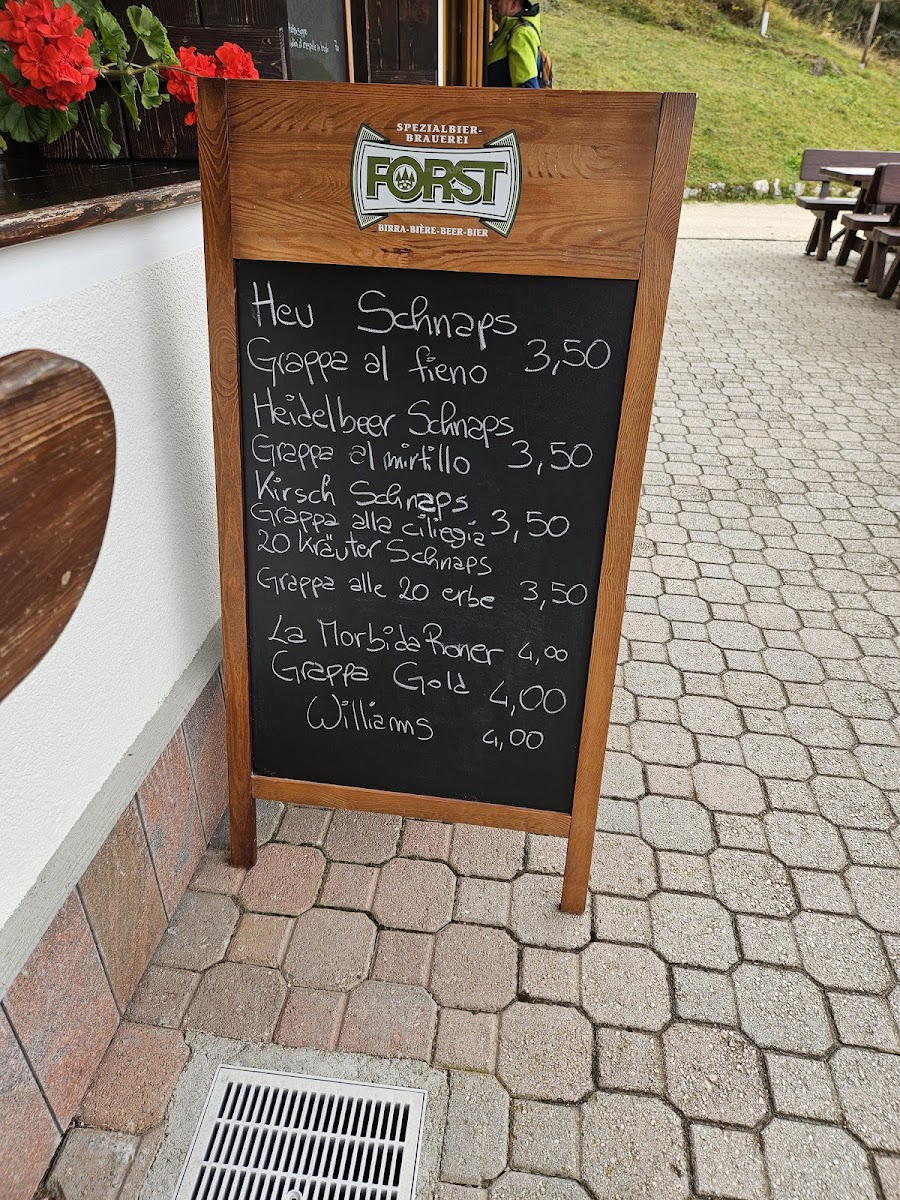 SPEZIALBIER-
BRAUEREI
FORST
BIRRA-BIÈRE-BEER-BIER
Heu Schnaps
Grappa al fieno 3,50
Heidelbeer Schnaps
Grappa al mirtillo 3,50
Kirsch Schnaps
Grappa alla ciliegia 3,50
20 Kräuter Schnaps
Grappa alle 20 erbe 3,50
La Morbida Roner 4,00
Grappa Gold 4,00
Williams 4,00